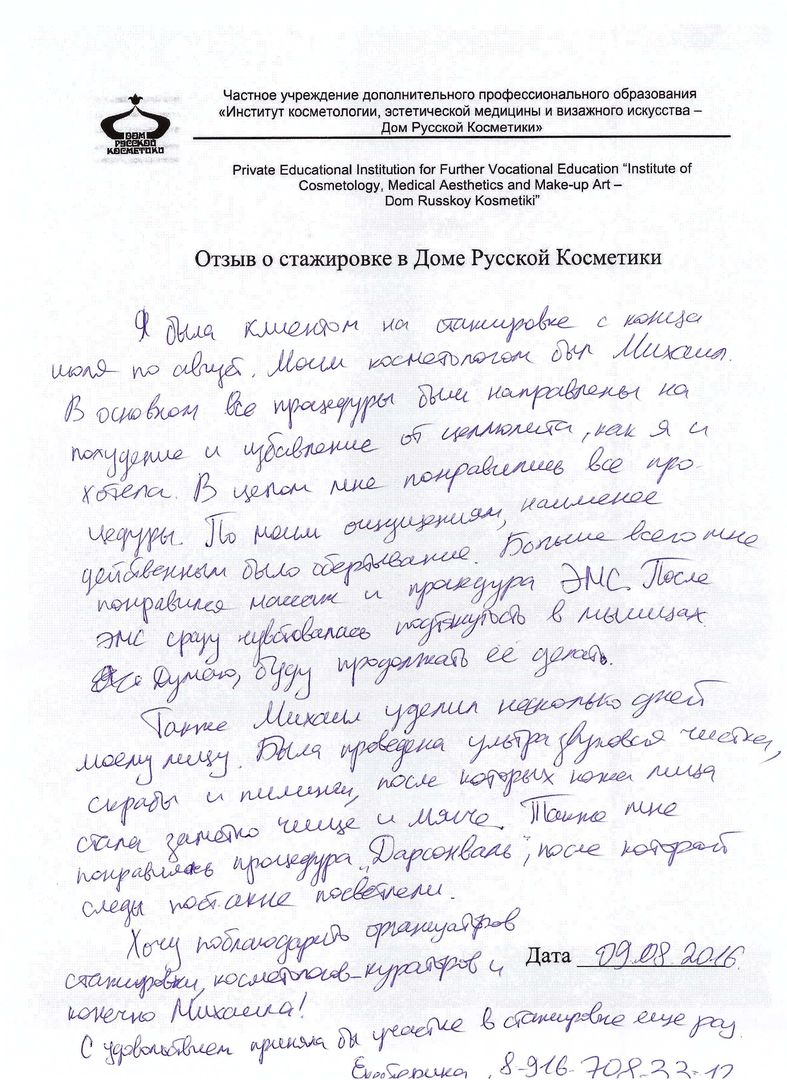 Частное учреждение дополнительного профессионального образования
«Институт косметологии, эстетической медицины и визажного искусства –
Дом Русской Косметики»
ДОМ
РУССКОЙ
КОСМЕТИКИ
Private Educational Institution for Further Vocational Education “Institute of
Cosmetology, Medical Aesthetics and Make-up Art –
Dom Russkoy Kosmetiki”
Отзыв о стажировке в Доме Русской Косметики
Я была клиентом на стажировке с конца
июля по август. Моим косметологом был Михаил.
В основном все процедуры были направлены на
похудение и избавление от целлюлита, как я и
хотела. В целом мне понравились все про-
цедуры. По моим ощущениям, наименее
действенным было обертывание. Больше всего мне
понравился массаж и процедура ЭМС. После
ЭМС сразу чувствовалась подтянутость в мышцах.
Думаю, буду продолжать её делать.
Также Михаил уделил несколько дней
моему лицу. Была проведена ультразвуковая чистка,
скрабы и пилинги, после которых кожа лица
стала заметно чище и мягче. Также мне
понравилась процедура „Дарсонваль", после которой
следы постакне посветлели.
Хочу поблагодарить организаторов
стажировки, косметологов-кураторов и
конечно Михаила!
Дата 09.08.2016
С удовольствием приняла бы участие в стажировке еще раз.
Екатерина, 8-916-708-22-12